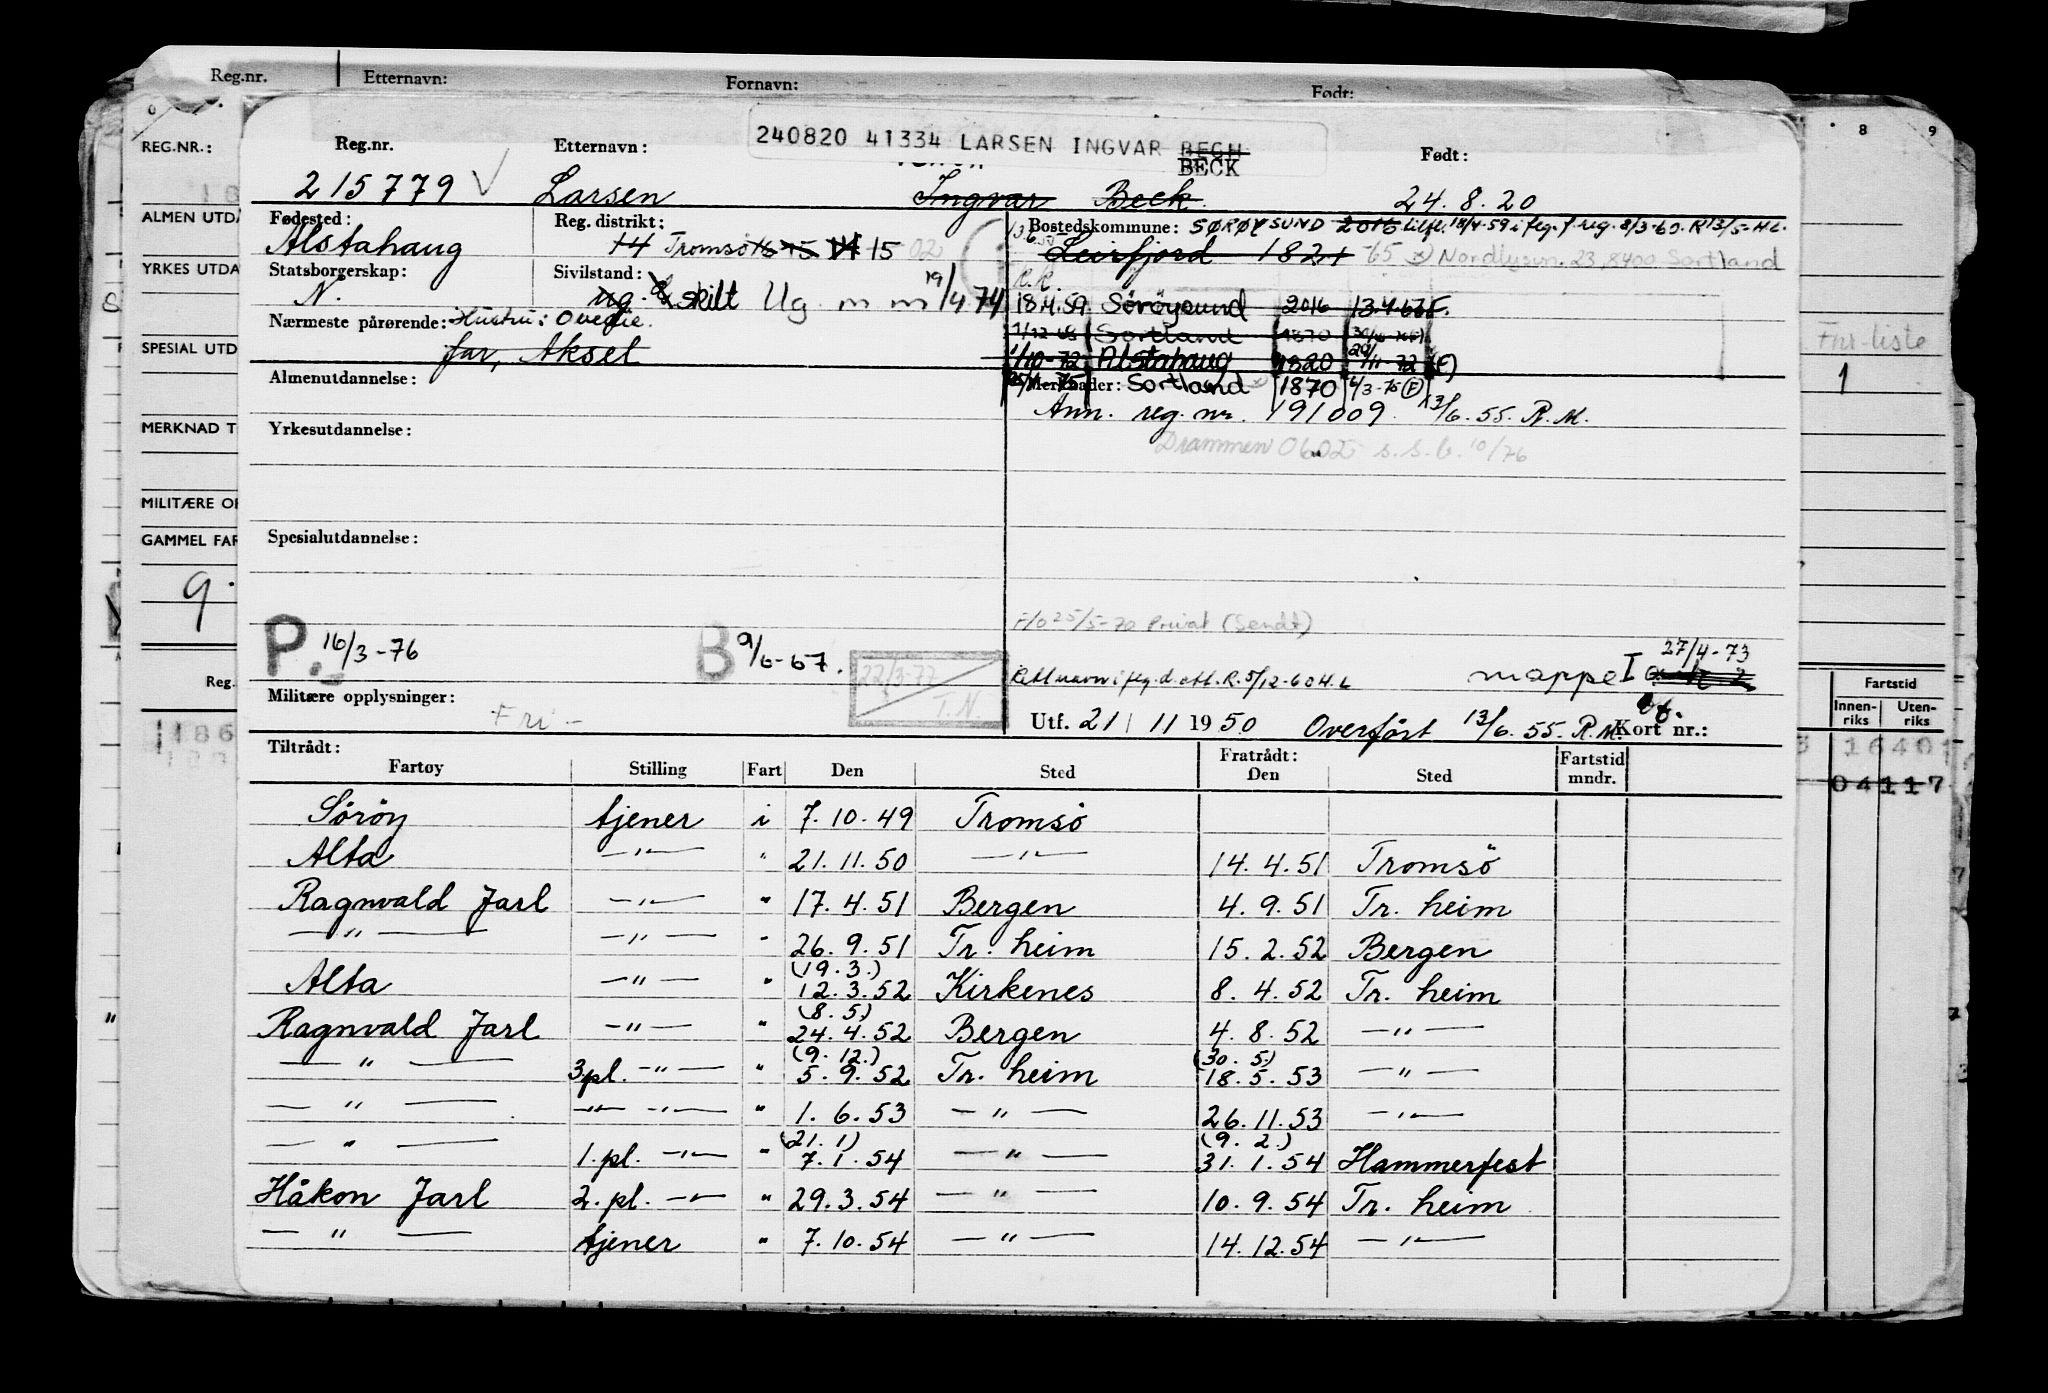 Reg.nr. Etternavn: Fornavn: Født:
8 9
REG.NR.:
ALMEN UTDA
YRKES UTDA
SPECIAL UTD
MERKNAD T
MILITÆRE OP
GAMMEL FAR
9.
Reg.
186
Fnr-liste
1
Fartstid
Innen-riks Uten-riks
16401
04117
240820 41334 LARSEN INGVAR BEGH
BECK
Reg.nr. Etternavn: Født:
215779 Larsen Ingvar Beck 24.8.20
Fødested: Reg. distrikt: Bostedskommune: SØRØYSUND
Alstahaug 14 Tromsö 16 15 14 15 02 Leirfjord 1824 -65 Nordlysvn. 23, 8400 Sortland
Statsborgerskap: Sivilstand: R.R.
N. ug. g skilt Ug. m m 19/4 74 18.4.59 Söröysund 2016 13.4.63F.
Nærmeste pårørende: Hustru: Ovedie. Sortland 1870
far, Aksel 1/10-72 Alstahaug 1820 29/11-72 (F)
Almenutdannelse: Merknader: Sortland 1870 6/3-75 (F)
Ann. reg. nr. 191009. 13/6. 55. R.M.
Yrkesutdannelse:
Drammen 0602 s.s.b. 10/76
Spesialutdannelse:
F/O 25/5-70 Privat (Sendt)
P. 16/3-76 B 9/6-67. 22/3-72 T.N.
27/4-73
mappe I
Militære opplysninger: Fri - Utf. 21/11 1950 Overført 13/6. 55. R.M. Kort nr.:
Tiltrådt: Fratrådt:
Fartøy Stilling Fart Den Sted Den Sted Fartstid mndr.
Söröy tjener i 7.10.49 Tromsö
Alta —"— " 21.11.50 —"— 14.4.51 Tromsö
Ragnvald Jarl —"— " 17.4.51 Bergen 4.9.51 Tr. heim
—"— —"— " 26.9.51 Tr. heim 15.2.52 Bergen
(19.3.)
Alta —"— " 12.3.52 Kirkenes 8.4.52 Tr. heim
(8.5.)
Ragnvald Jarl —"— " 24.4.52 Bergen 4.8.52 —"—
(9.12.) (30.5.)
—"— 3.pl. —"— " 5.9.52 Tr. heim 18.5.53 —"—
—"— —"— —"— " 1.6.53 —"— 26.11.53 —"—
(21.1) (9.2.)
—"— 1.pl. —"— " 7.1.54 —"— 31.1.54 Hammerfest
Håkon Jarl 2.pl. —"— " 29.3.54 —"— 10.9.54 Tr. heim
—"— tjener " 7.10.54 —"— 14.12.54 —"—